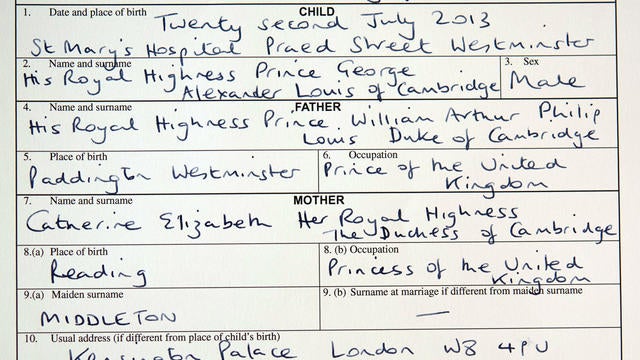 CHILD
1. Date and place of birth
Twenty second July 2013
St Mary's Hospital Praed Street Westminster
2. Name and surname
His Royal Highness Prince George
Alexander Louis of Cambridge
3. Sex
Male
FATHER
4. Name and surname
His Royal Highness Prince William Arthur Philip
Louis Duke of Cambridge
5. Place of birth
Paddington Westminster
6. Occupation
Prince of the United
Kingdom
MOTHER
7. Name and surname
Catherine Elizabeth Her Royal Highness
The Duchess of Cambridge
8.(a) Place of birth
Reading
8. (b) Occupation
Princess of the United
Kingdom
9.(a) Maiden surname
MIDDLETON
9. (b) Surname at marriage if different from maiden surname
—
10. Usual address (if different from place of child's birth)
Kensington Palace London W8 4PU